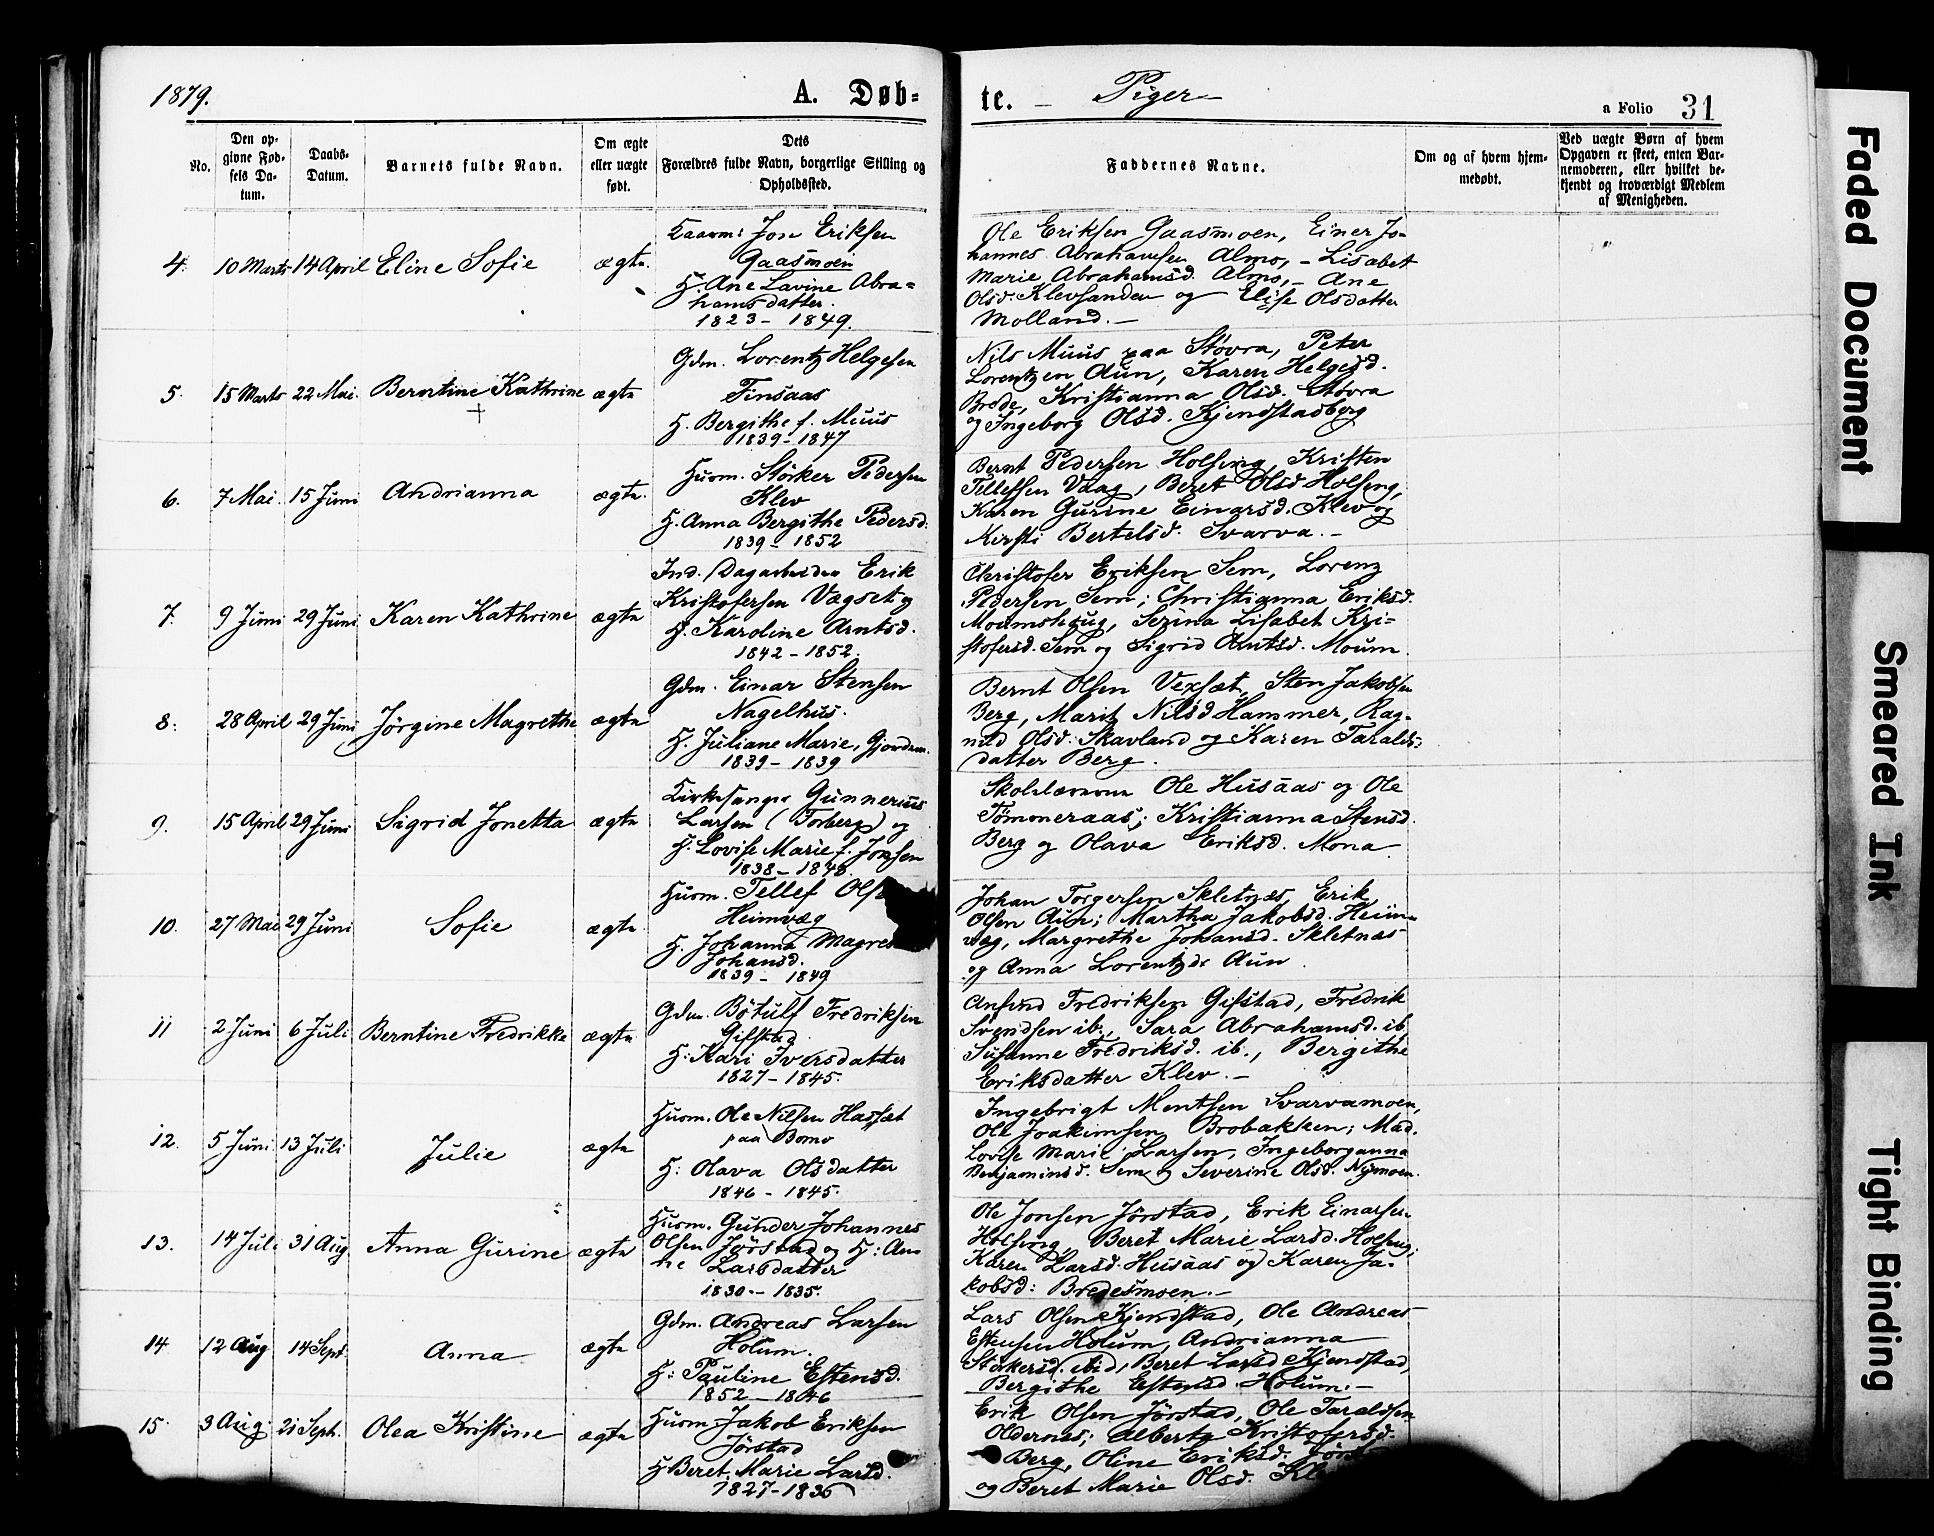 1879.
A. Døb=
te. — Piger —
a Folio 31
No.
Den op-
givne Fød-
sels Da-
tum.
Daabs-
Datum.
Barnets fulde Navn.
Om ægte
eller uægte
født.
Dets
Forældres fulde Navn, borgerlige Stilling og
Opholdssted.
Faddernes Navne.
Om og af hvem hjem-
medøbt.
Ved uægte Børn af hvem
Opgaven er skeet, enten Bar-
nemoderen, eller hvilket be-
kjendt og troværdigt Medlem
af Menigheden.
4. 10 Marts 14 April Eline Sofie ægte.
Kaarm: Jon Eriksen
Gaasmoen
H. Ane Lavine Abra=
hamsdatter.
1823 - 1849.
Ole Eriksen Gaasmoen, Einer Jo-
hannes Abrahamsen Almo, - Lisabet
Marie Abrahamsd. Almo, - Ane
Olsd. Klevsanden og Elise Olsdatter
Molland. —
5. 15 Marts 22 Mai. Berntine Kathrine ægte
+
Gdm. Lorentz Helgesen
Finsaas
H. Bergithe f. Muus
1839 - 1847
Nils Muus paa Støvra, Peter
Lorentzen Aun, Karen Helgesd.
Brede, Kristianna Olsd. Støvra
og Ingeborg Olsd. Kjendstadberg
6. 7 Mai. 15 Juni Andrianna ægte.
Husm. Störker Pedersen
Klev
H. Anna Bergithe Pedersd.
1839 - 1852
Bernt Pedersen Holsing, Kristen
Tellefsen Vaag, Beret Olsd Holsing,
Karen Gurine Einarsd. Klev og
Kirsti Bertelsd. Svarva. -
7. 9 Juni 29 Juni Karen Kathrine ægte
Ind. / Dagarbeider Erik
Kristofersen Vægset og
H. Karoline Arntsd.
1842 - 1852.
Christofer Eriksen Sem, Lorenz
Pedersen Sem; Christianna Eriksd.
Moumshaug, Serina Lisabet Kri-
stofersd. Sem og Sigrid Knutsd. Moum.
8. 28 April 29 Juni Jörgine Magrethe ægte
Gdm. Einar Stensen
Nagelhus.
H. Juliane Marie, Gjordm.
1839 - 1839
Bernt Olsen Vexsæt, Sten Jakobsen
Berg, Marit Nilsd Hammer, Rag-
nild Olsd. Skavland og Karen Taralds-
datter Berg.
9. 15 April 29 Juni Sigrid Jonetta ægte
Kirkesanger Gunnerius
Larsen (Forberg) og
H. Lovise Marie f. Jonsen
1838 -
Skolelærerne Ole Husaas og Ole
Tömmeraas; Kristianna Stensd.
Berg og Olava Eriksd. Mona.
10. 27 Mai 29 Juni Sofie ægte.
Husm. Tellef
Heimvæg
H. Johanna
Johansd.
1839 - 1849
Johan Torgersen Skletnæs, Erik
Olsen Aun; Martha Jakobsd. Heim-
væg, Margrethe Johansd. Skletnæs
og Anna Lorentzdr Aun.
11 2 Juni 6 Juli Berntine Fredrikke ægte
Gdm. Bötulf Fredriksen
Gifstad
H. Kari Iversdatter
1827 - 1845.
Anfind Fredriksen Gifstad, Fredrik
Svendsen ib., Sara Abrahamsd. ib.
Susanne Fredriksd. ib., Bergithe
Eriksdatter Klev. —
12. 5 Juni 13 Juli Julie ægte
Husm. Ole Nilsen Hassæt
paa Domo
H. Olava Olsdatter
1846 - 1845.
Ingebrigt Mentsen Svarvamoen,
Ole Joakimsen Brobakken; Mad.
Lovise Marie Larsen, Ingeborganna
Benjaminsd. Sem og Severine Olsd. Nymoen.
13. 14 Juli 31 Aug. Anna Gurine ægte
Husm. Gunder Johannes
Olsen Jörstad og H: An-
ne Larsdatter
1830 - 1835.
Ole Jonsen Jörstad, Erik Einarsen
Holsing, Beret Marie Larsd. Holsing,
Karen Larsd. Husaas og Karen Ja-
kobsd: Bredesmoen. -
14 12 Aug 14 Sept. Anna ægte
Gdm. Andreas Larsen
Holum.
H: Pauline Estensd.
1852 - 1846
Lars Olsen Kjendstad, Ole Andreas
Estensen Holum, Andrianna
Störkersd. ibid, Beret Larsd Kjendstad,
Bergithe Estensd Holum. -
15. 3 Aug. 21 Sept. Olea Kristine ægte
Husm. Jakob Eriksen
Jörstad
H Beret Marie Larsd.
1827 - 1836
Erik Olsen Jörstad, Ole Taraldsen
Oldernes; Alberte Kristofersd.
Berg, Oline Eriksd.
og Beret Marie Olsd.
Faded Document
Smeared Ink
Tight Binding